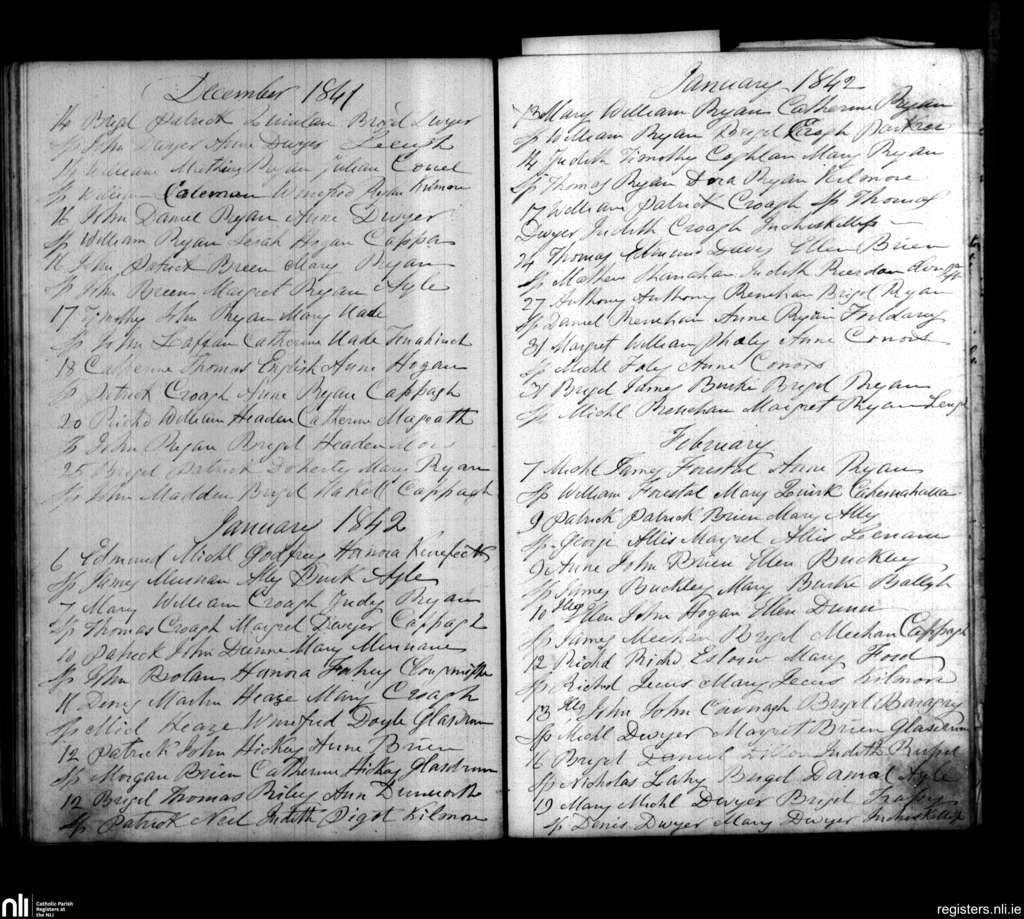 December 1841
14 Brigd Patrick Quinlan Brigd Dwyer
Sp John Dwyer Anne Dwyer
14 William Mathias Ryan Julian
Sp Coleman Winifred Ryan Kilmore
16 John Daniel Ryan Anne Dwyer
Sp William Ryan Sarah Hogan Cappa
16 John Patrick Breen Mary Ryan
Sp John Breen Margret Ryan Ayle
17 Timothy John Ryan Mary Uade
Sp John Laffan Catherine Uade
18 Catherine Thomas English Anne Hogan
Sp Patrick Croagh Anne Ryan Cappagh
20 Richd William Headen Catherine Magrath
Sp John Ryan Brigd Headen
25 Brigd Patrick Doherty Mary Ryan
Sp John Madden Brigd Cappagh
January 1842
6 Edmund Michl Godfrey Honora
Sp James Ally Ayle
7 Mary William Croagh Judy Ryan
Sp Thomas Croagh Margret Dwyer Cappagh
10 Patrick John Dunne Mary
Sp John Bolan Honora Fahey
11 Deny Martin Heaze Mary Croagh
Sp Michl Heaze Winifred Doyle Glasdrum
12 Patrick John Hickey Anne Brien
Sp Morgan Brien Catherine Hickey Glasdrum
12 Brigd Thomas Riley Ann Dunworth
Sp Patrick Neil Judith Pigot Kilmore
January 1842
13 Mary William Ryan Catherine Ryan
Sp William Ryan Brigd Croagh
14 Judith Timothy Coghlan Mary Ryan
Sp Thomas Ryan Dora Ryan Kilmore
17 William Patrick Croagh Sp Thomas
Dwyer Judith Croagh
24 Thomas Edmund Davy Ellen Brien
Sp Mathew Shanahan Judith Reardan
27 Anthony Anthony Renehan Brigd Ryan
Sp Daniel Renehan Anne Ryan
31 Margret William Phaley Anne Conors
Sp Michl Foley Anne Conors
31 Brigd James Burke Brigd Ryan
Sp Michl Renehan Margret Ryan
February
7 Michl James Forestal Anne Ryan
Sp William Forestal Mary Quirk
9 Patrick Patrick Brien Mary Ally
Sp George Allis Margret Allis
9 Anne John Brien Ellen Buckley
Sp James Buckley Mary Burke
10 Ellen John Hogan Ellen Dunn
Sp James Meehan Brigd Meehan Cappagh
12 Richd Richd Mary Ford
Sp Richd Mary Kilmore
13 John John Cavnagh Brigd
Sp Michl Dwyer Margret Brien Glasdrum
16 Brigd Daniel Judith
Sp Nicholas Brigd Ayle
19 Mary Michl Dwyer Brigd
Sp Denis Dwyer Mary Dwyer
nli
Catholic Parish
Registers at
the NLI
registers.nli.ie